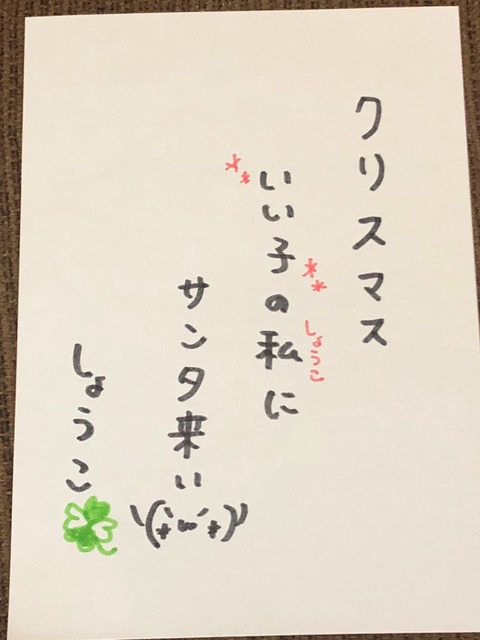 クリスマス
いい子の私に
しょうこ
サンタ来い
しょうこ